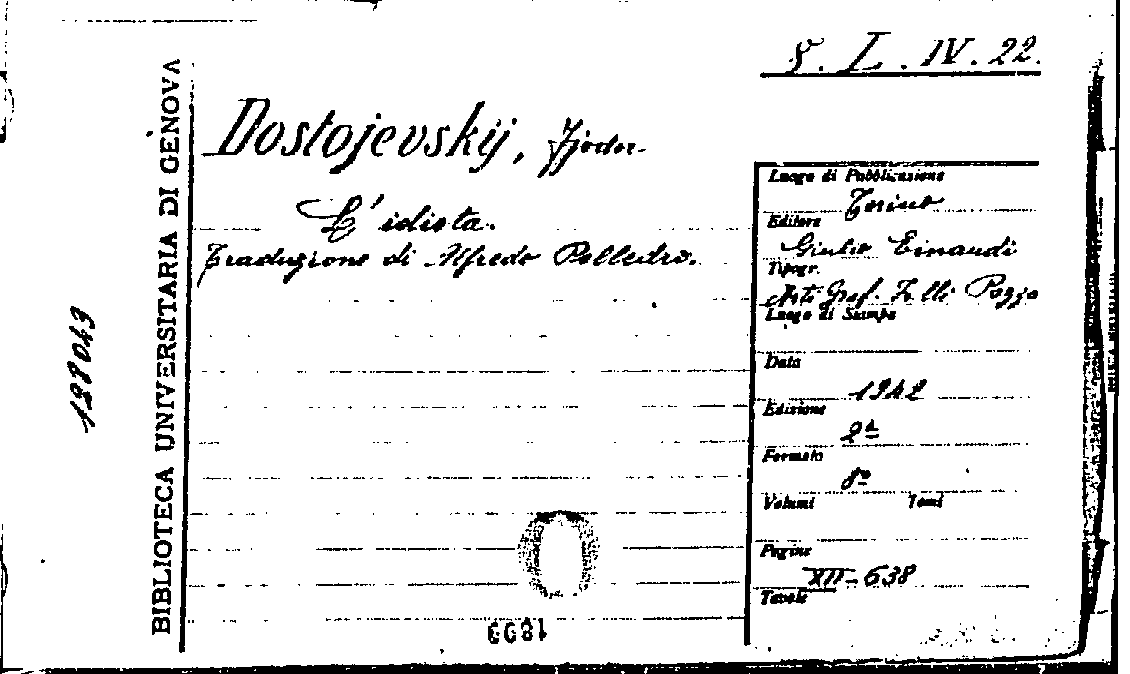 L. IV. 22.
BIBLIOTECA UNIVERSITARIA DI GENOVA
138049
Dostojevskij, Fjodor.
L'idiota.
Traduzione di Alfredo Polledro.
Luogo di Pubblicazione
Torino
Editore
Giulio Einaudi
Tipogr.
Arti Graf. F.lli Pozzo
Luogo di Stampa
Data
1942
Edizione
2ª
Formato
8º
Volumi Tomi
Pagine
XII-638
Tavole